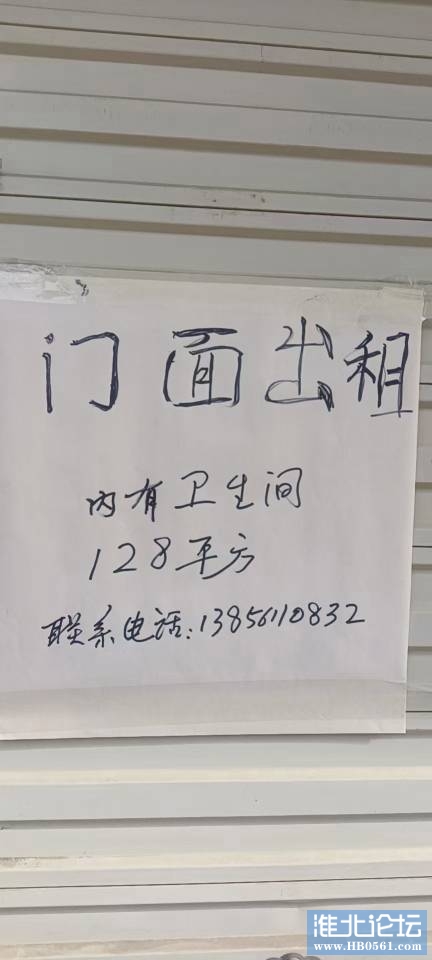 门面出租
内有卫生间
128平方
联系电话:13856110832
淮北论坛
www.HB0561.com